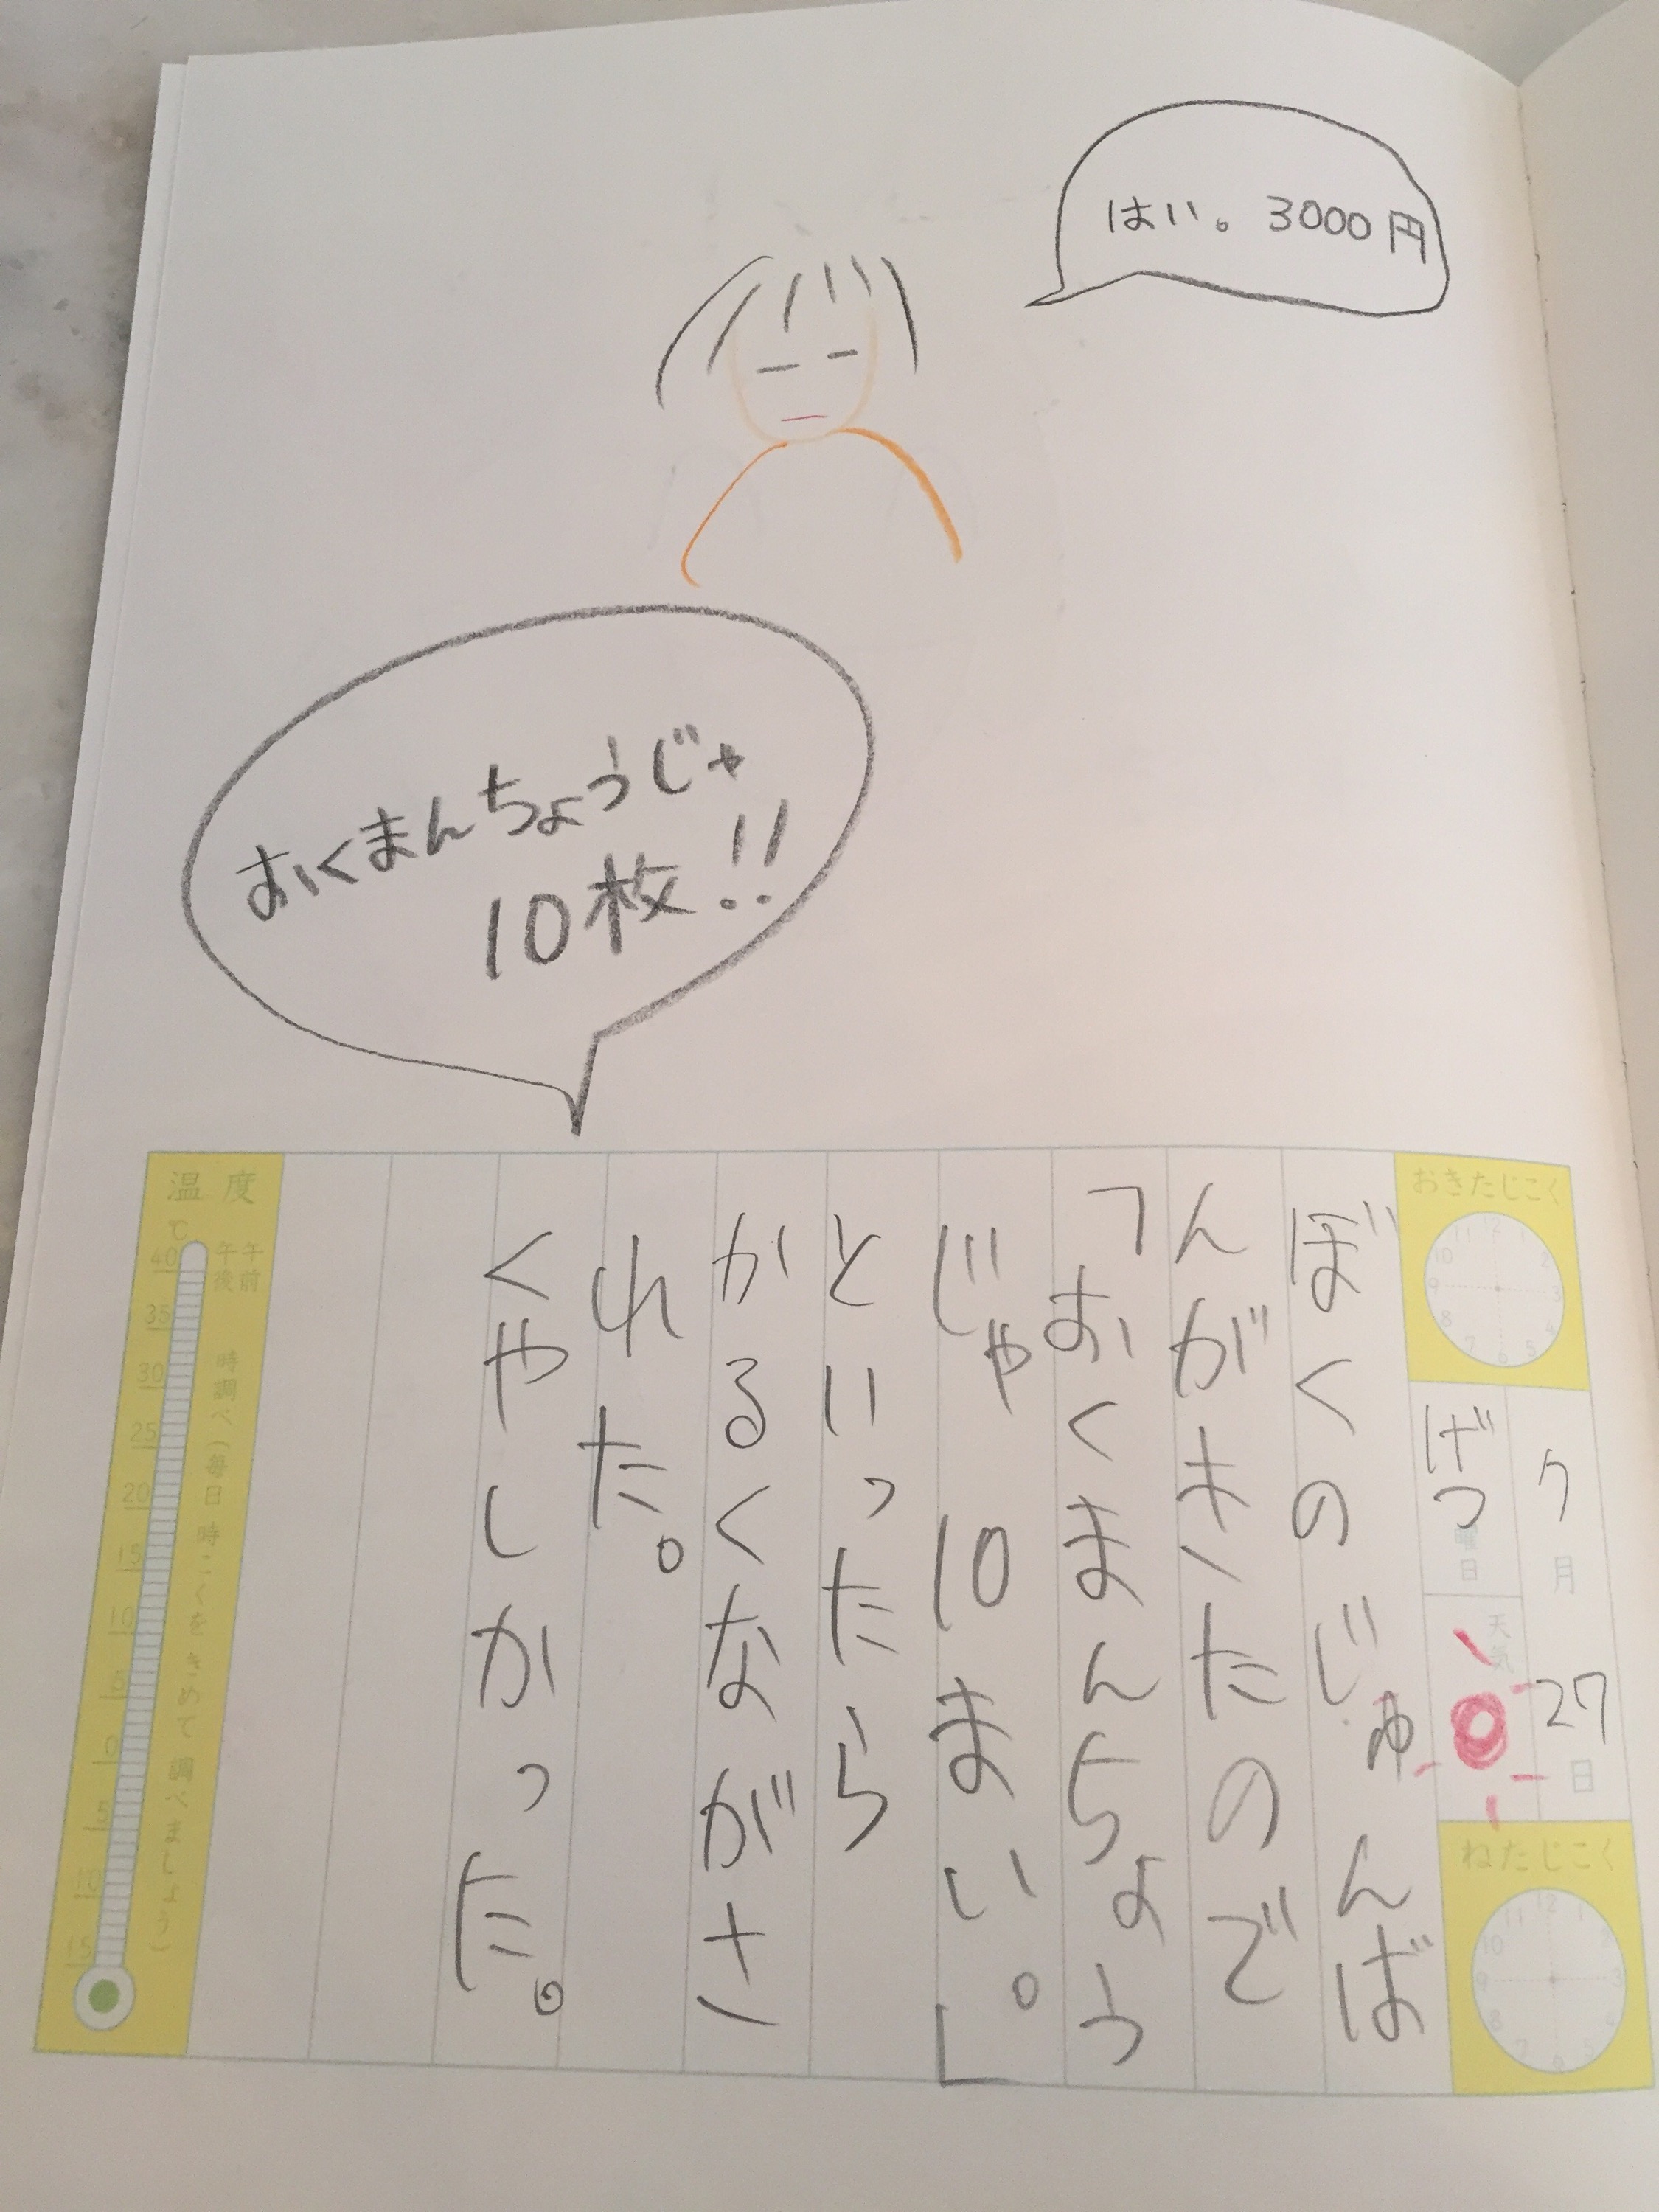 はい。3000円
おくまんちょうじゃ
10枚!!
おきたじこく
7月27日
げつ曜日
天気
ねたじこく
ぼくのじゅんば
んがきたので
「おくまんちょう
じゃ 10まい。」
といったら
かるくながさ
れた。
くやしかった。
温度
℃
午前
午後
時調べ(毎日 時こくをきめて調べましょう)
40
35
30
25
20
15
10
5
0
5
10
15